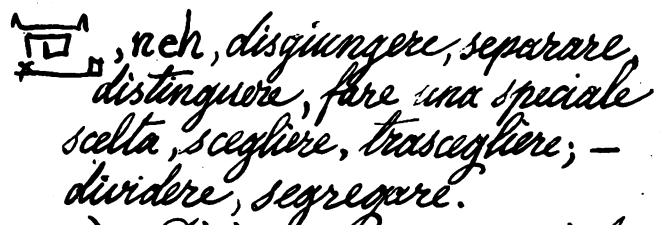 , neh, disgiungere, separare,
distinguere, fare una speciale
scelta, scegliere, trascegliere; —
dividere, segregare.